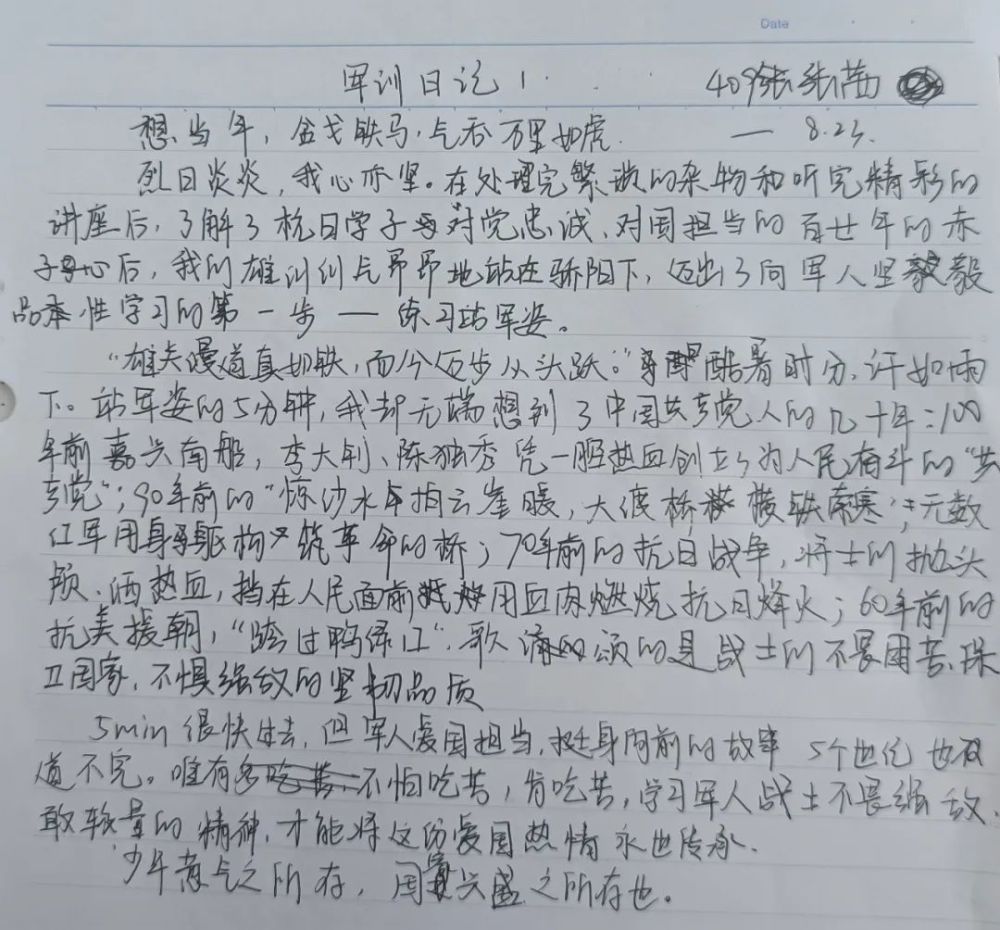 Date
军训日记1 409张张茜
想当年,金戈铁马,气吞万里如虎. — 8.23.
烈日炎炎,我心亦坚。在处理完繁琐的杂物和听完精彩的
讲座后,了解了抗日学子对党忠诚、对国担当的百廿年的赤
子心后,我们雄训训气昂昂地站在骄阳下,迈出了向军人坚毅
品性学习的第一步——练习站军姿。
“雄关漫道真如铁,而今迈步从头跃。”酷暑时分,汗如雨
下。站军姿的5分钟,我却无端想到了中国共产党人的几十年:100
年前嘉兴南船,李大钊、陈独秀凭一腔热血创立了为人民奋斗的“共
产党”;90年前的“惊沙水拍云崖暖,大渡桥横铁索寒”;无数
红军用身躯构筑革命的桥;70年前的抗日战争,将士们抛头
颅、洒热血,挡在人民面前用血肉燃烧抗日烽火;60年前的
抗美援朝,“跨过鸭绿江”.歌颂的是战士们不畏困苦、保
卫国家,不惧强敌的坚韧品质
5min很快过去,但军人爱国担当,挺身向前的故事 5个世纪也
道不完。唯有不怕吃苦,肯吃苦,学习军人战士不畏强敌、
敢较量的精神,才能将这份爱国热情永世传承.
少年意气之所存,国家兴盛之所存也。